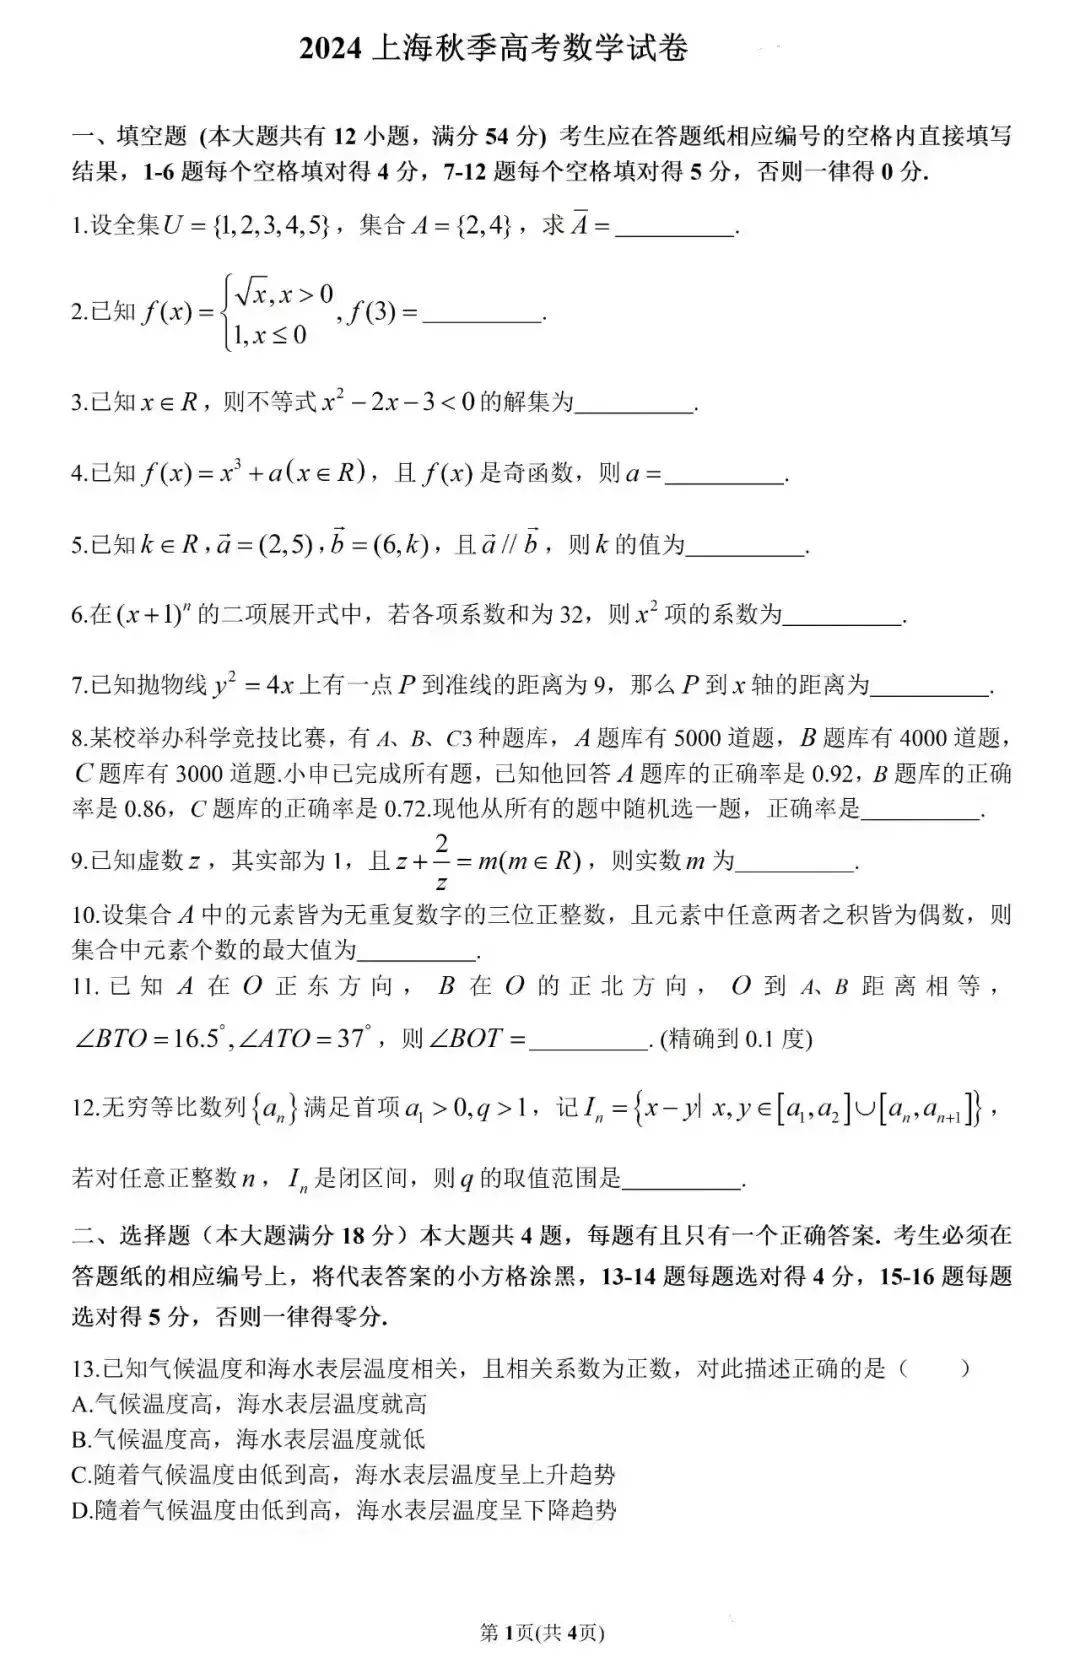 2024 上海秋季高考数学试卷
一、填空题 (本大题共有 12 小题，满分 54 分) 考生应在答题纸相应编号的空格内直接填写
结果，1-6 题每个空格填对得 4 分，7-12 题每个空格填对得 5 分，否则一律得 0 分.
1.设全集U = {1,2,3,4,5}，集合 A = {2,4}，求 A̅ = __________.
2.已知 f(x) = {√x, x > 0
1, x ≤ 0 , f(3) = __________.
3.已知 x ∈ R，则不等式 x² − 2x − 3 < 0 的解集为__________.
4.已知 f(x) = x³ + a(x ∈ R)，且 f(x) 是奇函数，则 a = __________.
5.已知 k ∈ R , a⃗ = (2,5) , b⃗ = (6,k)，且 a⃗ // b⃗，则 k 的值为__________.
6.在 (x+1)ⁿ 的二项展开式中，若各项系数和为 32，则 x² 项的系数为__________.
7.已知抛物线 y² = 4x 上有一点 P 到准线的距离为 9，那么 P 到 x 轴的距离为__________.
8.某校举办科学竞技比赛，有 A、B、C3 种题库，A 题库有 5000 道题，B 题库有 4000 道题，
C 题库有 3000 道题.小申已完成所有题，已知他回答 A 题库的正确率是 0.92，B 题库的正确
率是 0.86，C 题库的正确率是 0.72.现他从所有的题中随机选一题，正确率是__________.
9.已知虚数 z，其实部为 1，且 z + 2/z = m(m ∈ R)，则实数 m 为__________.
10.设集合 A 中的元素皆为无重复数字的三位正整数，且元素中任意两者之积皆为偶数，则
集合中元素个数的最大值为__________.
11. 已知 A 在 O 正东方向，B 在 O 的正北方向，O 到 A、B 距离相等，
∠BTO = 16.5°, ∠ATO = 37°，则 ∠BOT = __________. (精确到 0.1 度)
12.无穷等比数列 {aₙ} 满足首项 a₁ > 0, q > 1，记 Iₙ = {x − y| x, y ∈ [a₁, a₂] ∪ [aₙ, aₙ₊₁]}，
若对任意正整数 n，Iₙ 是闭区间，则 q 的取值范围是__________.
二、选择题（本大题满分 18 分）本大题共 4 题，每题有且只有一个正确答案. 考生必须在
答题纸的相应编号上，将代表答案的小方格涂黑，13-14 题每题选对得 4 分，15-16 题每题
选对得 5 分，否则一律得零分.
13.已知气候温度和海水表层温度相关，且相关系数为正数，对此描述正确的是（    ）
A.气候温度高，海水表层温度就高
B.气候温度高，海水表层温度就低
C.随着气候温度由低到高，海水表层温度呈上升趋势
D.隨着气候温度由低到高，海水表层温度呈下降趋势
第 1页(共 4页)